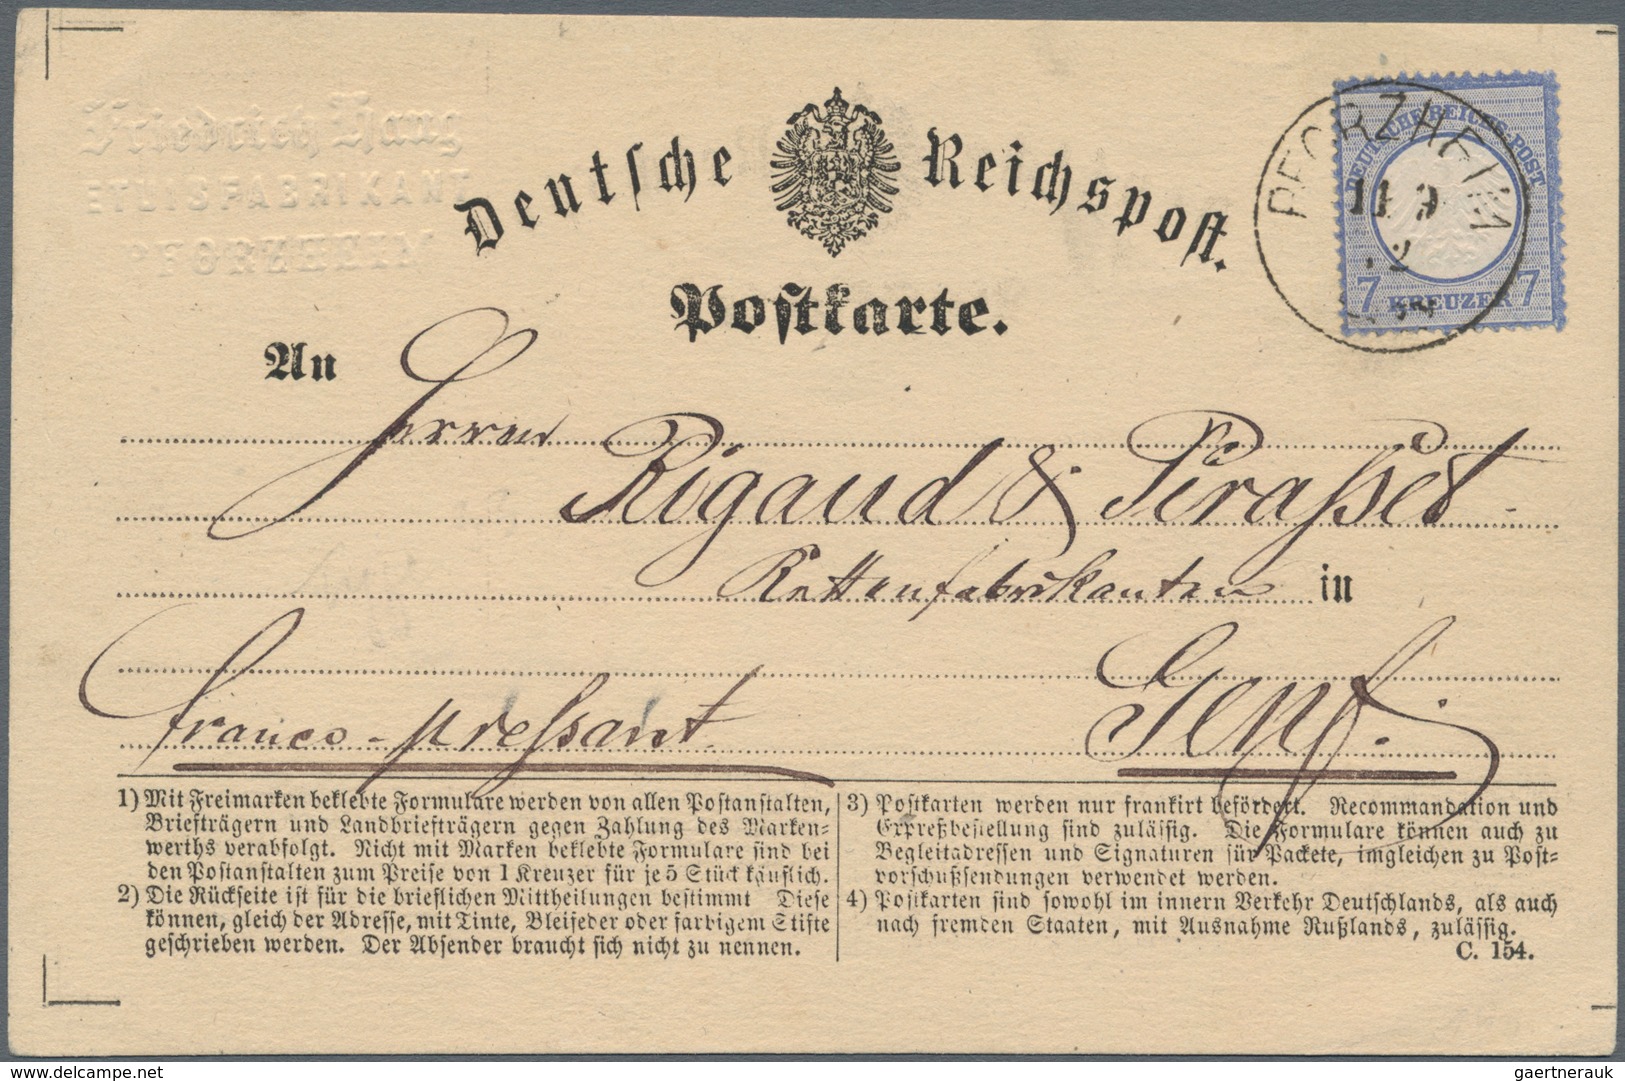 Friedrich Haug
ETUISFABRIKANT
PFORZHEIM
Deutsche Reichspost.
Postkarte.
PFORZHEIM
11 9
DEUTSCHE REICHS-POST
7 KREUZER 7
An
Herren
Rigaud & Perasset
Kettenfabrikanten in
Genf.
franco-pressant
1) Mit Freimarken beklebte Formulare werden von allen Postanstalten,
Briefträgern und Landbriefträgern gegen Zahlung des Marken-
werths verabfolgt. Nicht mit Marken beklebte Formulare sind bei
den Postanstalten zum Preise von 1 Kreuzer für je 5 Stück käuflich.
2) Die Rückseite ist für die brieflichen Mittheilungen bestimmt Diese
können, gleich der Adresse, mit Tinte, Bleifeder oder farbigem Stifte
geschrieben werden. Der Absender braucht sich nicht zu nennen.
3) Postkarten werden nur frankirt befördert. Recommandation und
Expreßbestellung sind zulässig. Die Formulare können auch zu
Begleitadressen und Signaturen für Packete, imgleichen zu Post-
vorschußsendungen verwendet werden.
4) Postkarten sind sowohl im innern Verkehr Deutschlands, als auch
nach fremden Staaten, mit Ausnahme Rußlands, zulässig.
C. 154.
www.delcampe.net
gaertnerauk